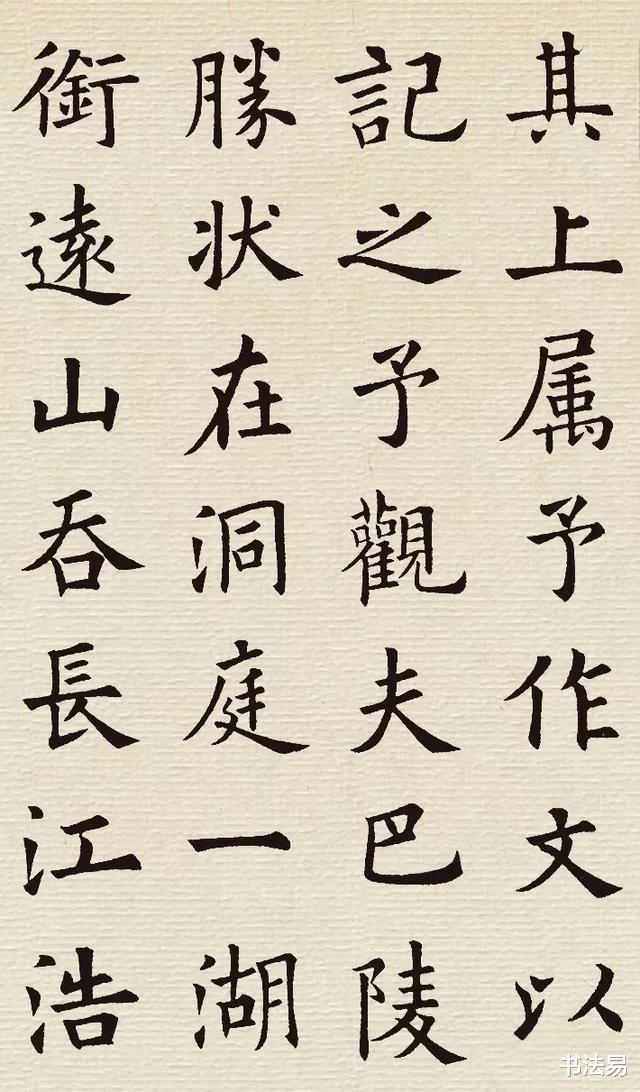 其上属予作文以
記之予觀夫巴陵
勝状在洞庭一湖
銜遠山吞長江浩
书法易